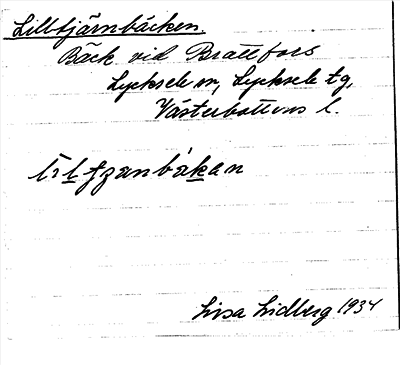 Lilltjärnbäcken.
Bäck vid Brattfors
Lycksele sn, Lycksele tg,
Västerbottens l.
Lisa Lidberg 1934